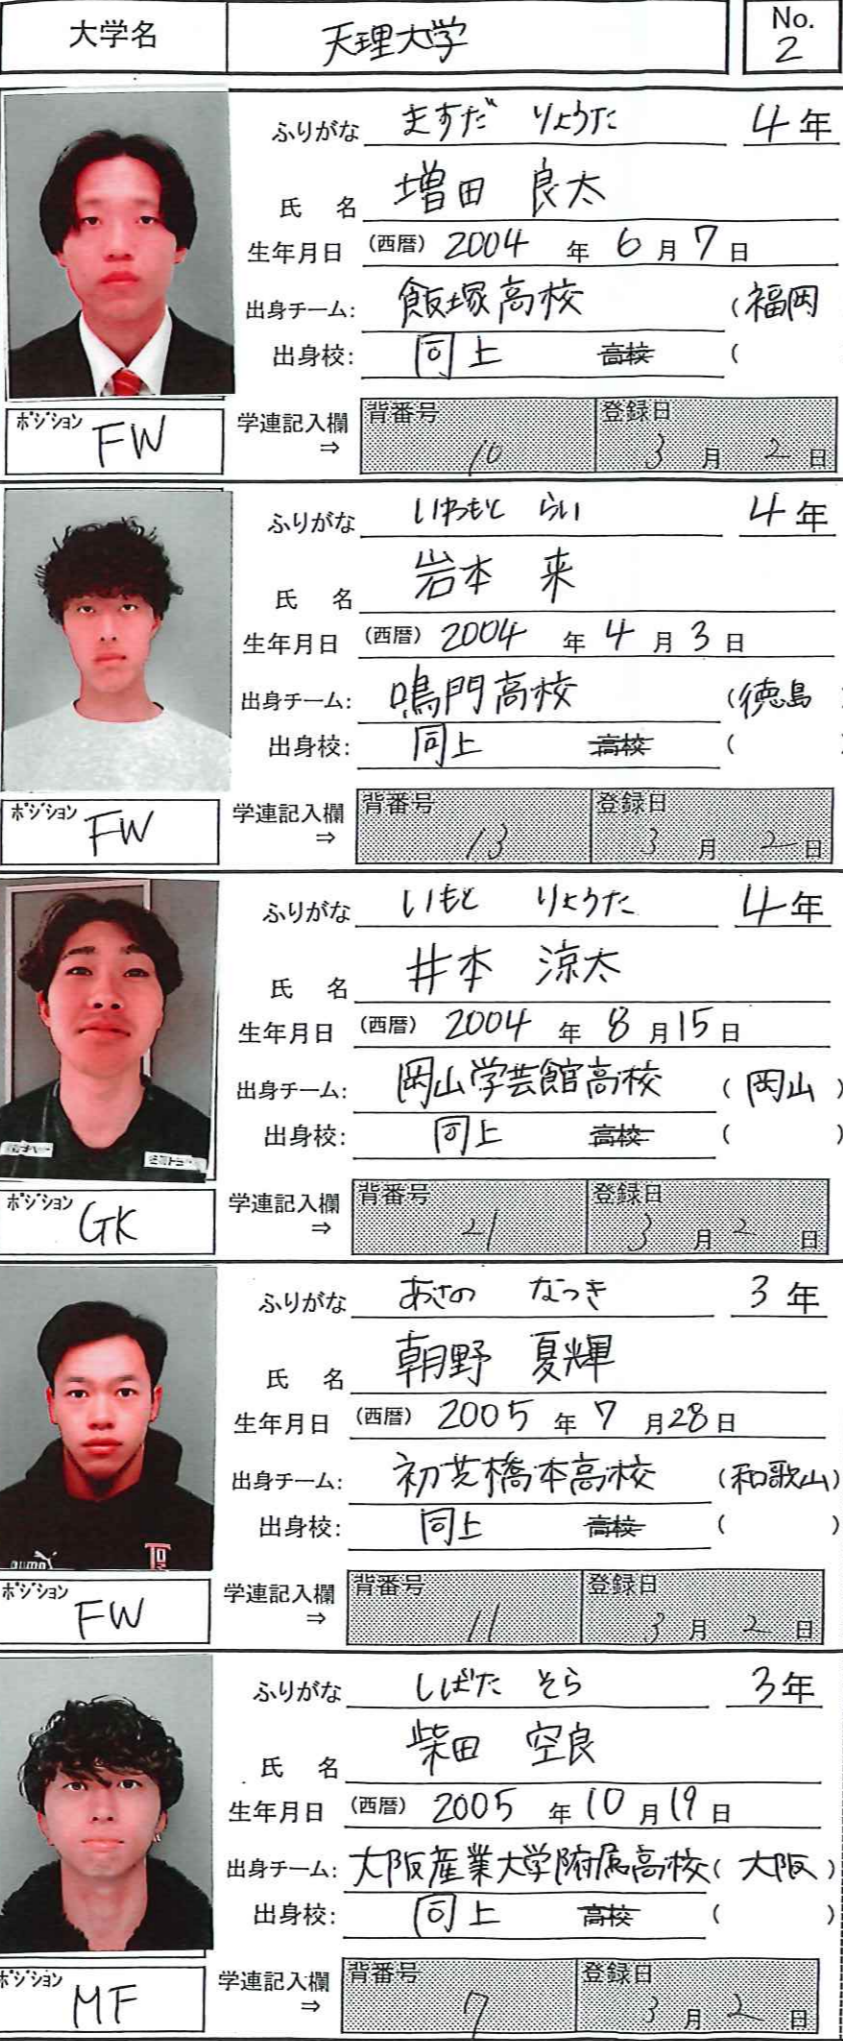 大学名 天理大学 No. 2
ふりがな ますだ りょうた 4年
氏 名 増田 良太
生年月日 (西暦) 2004 年 6 月 7 日
出身チーム: 飯塚高校 (福岡
出身校: 同上 高校 (
ポジション FW 学連記入欄 ⇒ 背番号 10 登録日 3 月 2 日
ふりがな いわもと らい 4年
氏 名 岩本 来
生年月日 (西暦) 2004 年 4 月 3 日
出身チーム: 鳴門高校 (徳島
出身校: 同上 高校 (
ポジション FW 学連記入欄 ⇒ 背番号 13 登録日 3 月 2 日
ふりがな いもと りょうた 4年
氏 名 井本 涼太
生年月日 (西暦) 2004 年 8 月 15 日
出身チーム: 岡山学芸館高校 (岡山)
出身校: 同上 高校 ( )
ポジション GK 学連記入欄 ⇒ 背番号 21 登録日 3 月 2 日
ふりがな あさの なつき 3年
氏 名 朝野 夏輝
生年月日 (西暦) 2005 年 7 月 28 日
出身チーム: 初芝橋本高校 (和歌山)
出身校: 同上 高校 ( )
puma
ポジション FW 学連記入欄 ⇒ 背番号 11 登録日 3 月 2 日
ふりがな しばた そら 3年
氏 名 柴田 空良
生年月日 (西暦) 2005 年 10 月 19 日
出身チーム: 大阪産業大学附属高校 (大阪)
出身校: 同上 高校 ( )
ポジション MF 学連記入欄 ⇒ 背番号 7 登録日 3 月 2 日